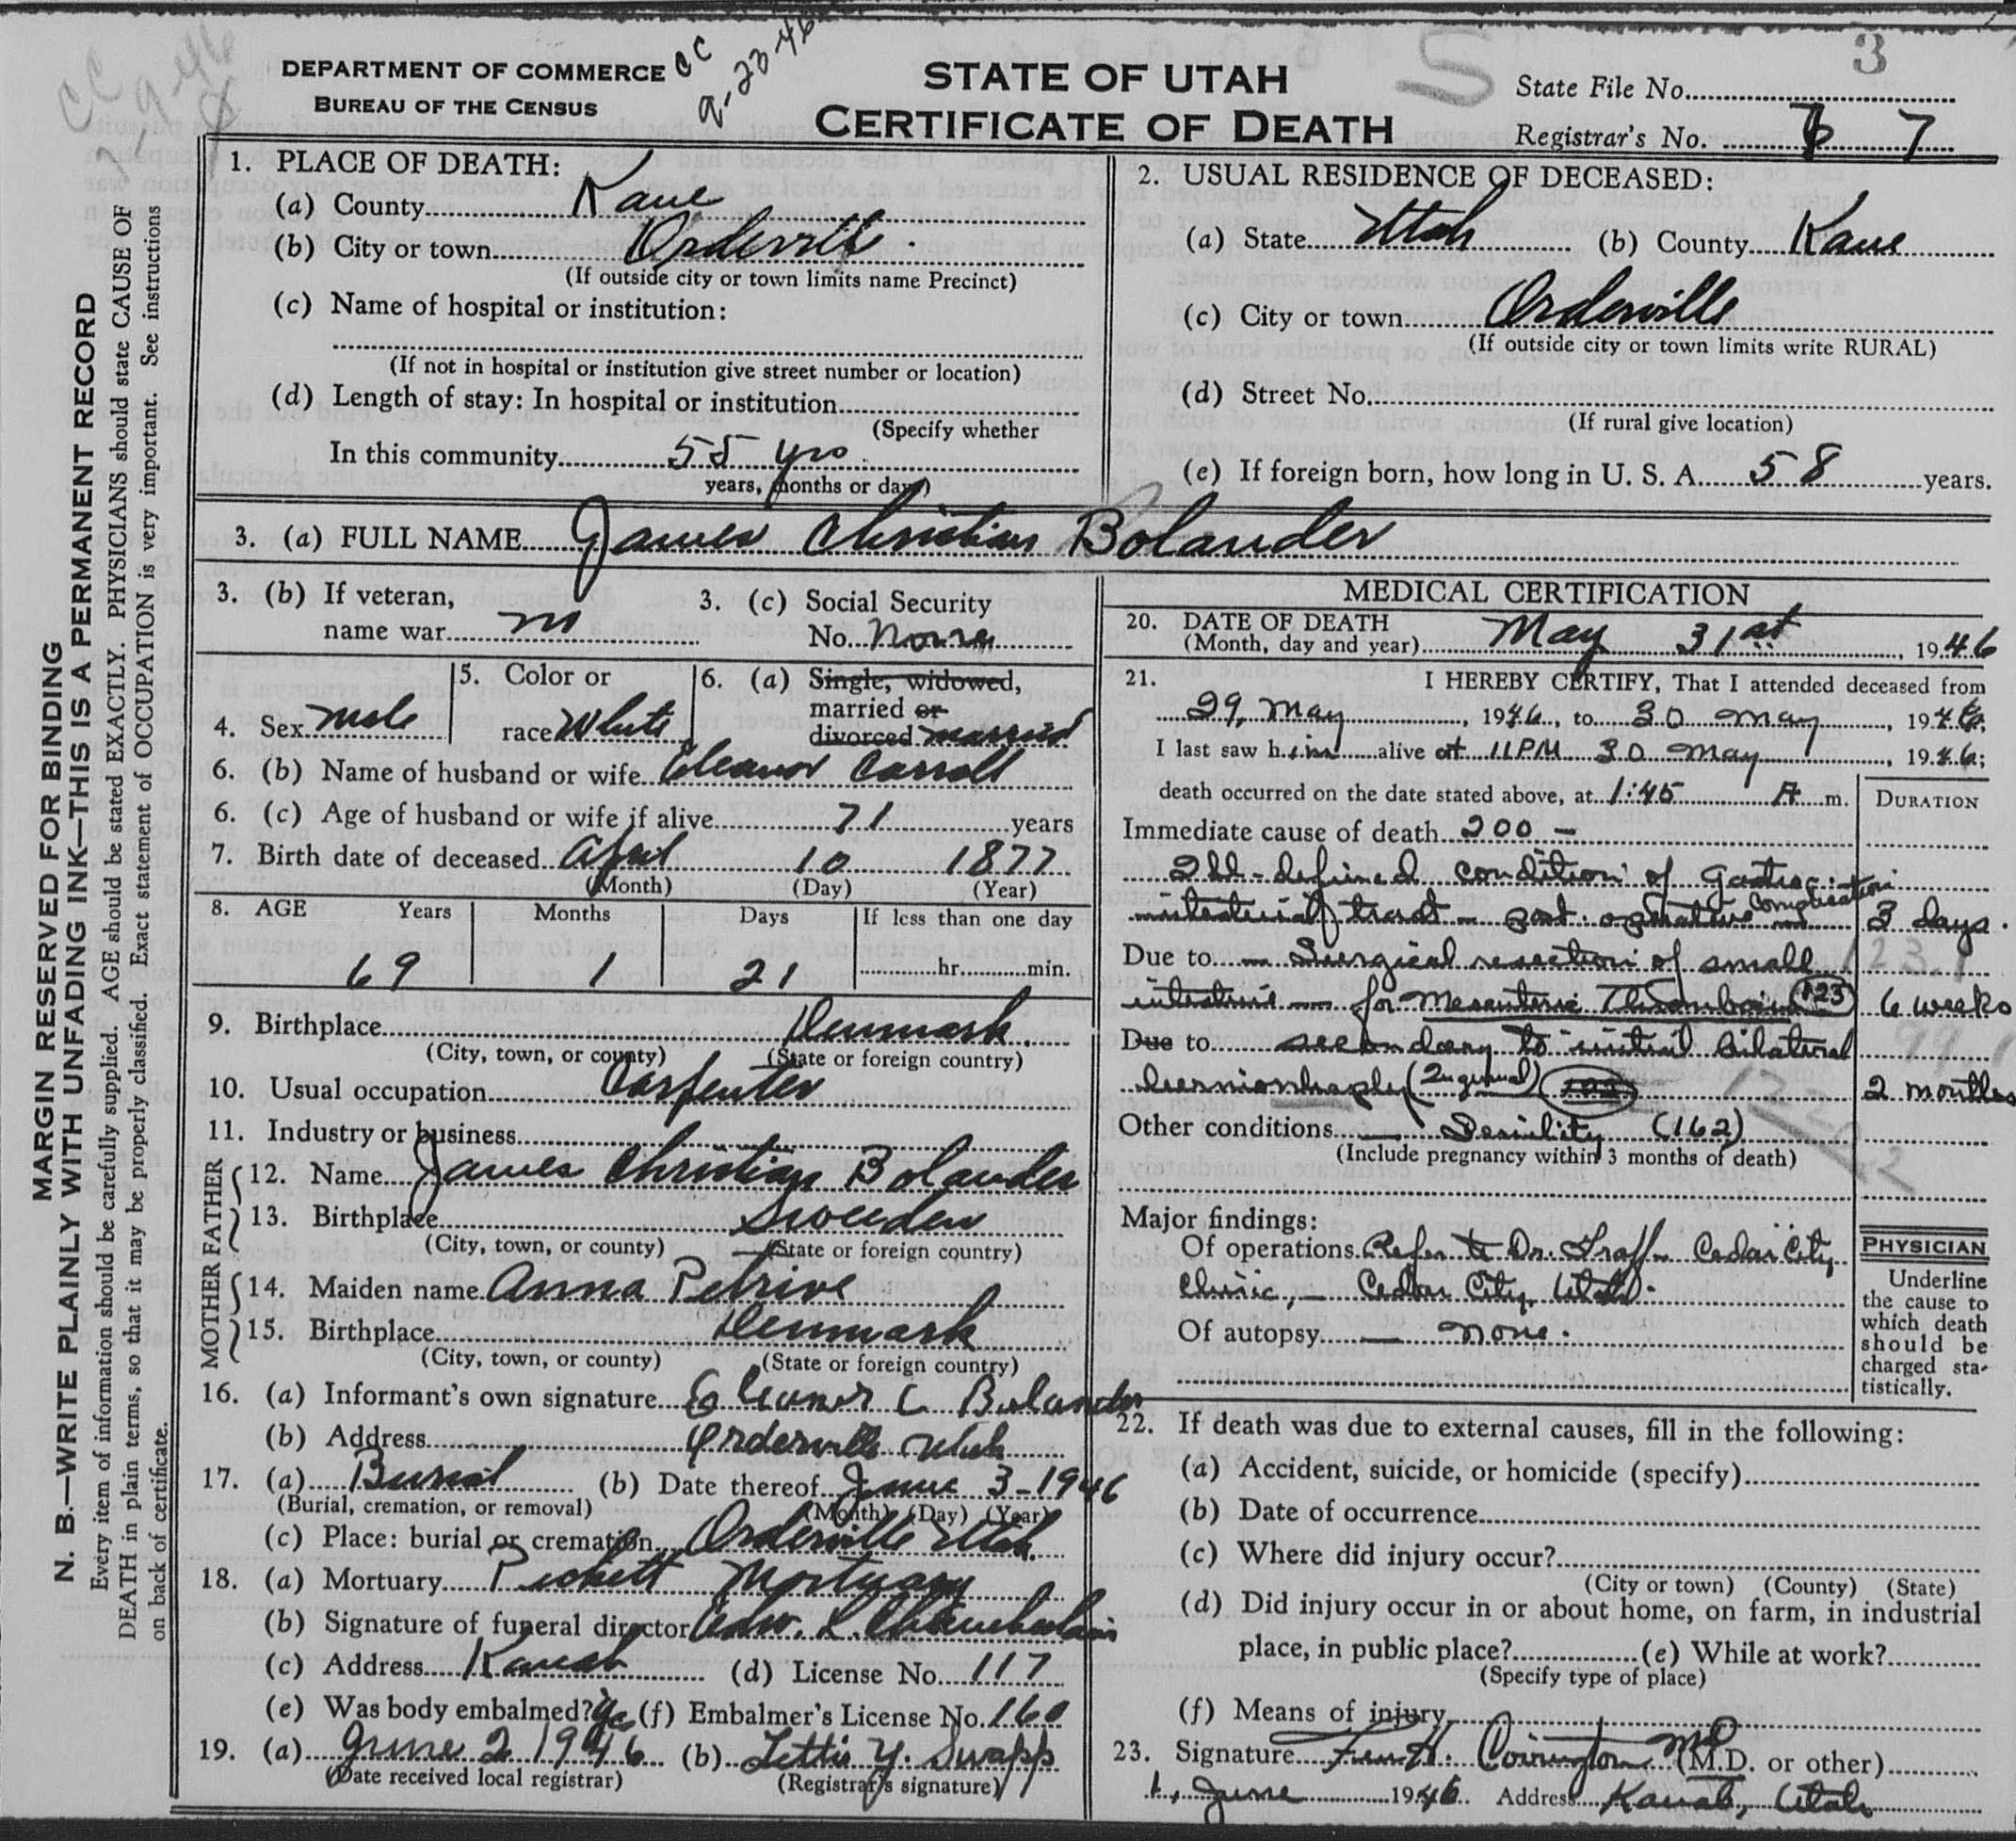 3
CC
9-23-46
DEPARTMENT OF COMMERCE
BUREAU OF THE CENSUS
STATE OF UTAH
CERTIFICATE OF DEATH
S
State File No.
Registrar's No. 7
MARGIN RESERVED FOR BINDING
N. B.—WRITE PLAINLY WITH UNFADING INK—THIS IS A PERMANENT RECORD
Every item of information should be carefully supplied. AGE should be stated EXACTLY. PHYSICIANS should state CAUSE OF
DEATH in plain terms, so that it may be properly classified. Exact statement of OCCUPATION is very important. See instructions
on back of certificate.
1. PLACE OF DEATH:
(a) County Kane
(b) City or town Orderville
(If outside city or town limits name Precinct)
(c) Name of hospital or institution:
(If not in hospital or institution give street number or location)
(d) Length of stay: In hospital or institution
(Specify whether
In this community 55 yrs.
years, months or days)
2. USUAL RESIDENCE OF DECEASED:
(a) State Utah (b) County Kane
(c) City or town Orderville
(If outside city or town limits write RURAL)
(d) Street No.
(If rural give location)
(e) If foreign born, how long in U. S. A. 58 years.
3. (a) FULL NAME James Christian Bolander
3. (b) If veteran,
name war no
3. (c) Social Security
No.
4. Sex male
5. Color or
race White
6. (a) Single, widowed,
married or
divorced married
6. (b) Name of husband or wife Eleanor Carroll
6. (c) Age of husband or wife if alive 71 years
7. Birth date of deceased April 10 1877
(Month) (Day) (Year)
8. AGE Years Months Days If less than one day
69 1 21 hr. min.
9. Birthplace Denmark.
(City, town, or county) (State or foreign country)
10. Usual occupation Carpenter
11. Industry or business
FATHER
12. Name James Christian Bolander
13. Birthplace Sweden
(City, town, or county) (State or foreign country)
MOTHER
14. Maiden name Anna Petrine
15. Birthplace Denmark
(City, town, or county) (State or foreign country)
16. (a) Informant's own signature Eleanor C Bolander
(b) Address Orderville Utah
17. (a) Burial (b) Date thereof June 3-1946
(Burial, cremation, or removal) (Month) (Day) (Year)
(c) Place: burial or cremation Orderville Utah.
18. (a) Mortuary Pickett Mortuary
(b) Signature of funeral director Edw. L. Chamberlain
(c) Address Kanab (d) License No. 117
(e) Was body embalmed? yes (f) Embalmer's License No. 160
19. (a) June 2 1946 (b) Lettie Y. Swapp
(Date received local registrar) (Registrar's signature)
MEDICAL CERTIFICATION
20. DATE OF DEATH
(Month, day and year) May 31st, 1946
21. I HEREBY CERTIFY, That I attended deceased from
29, May, 1946, to 30 May, 1946.
I last saw him alive at 11PM 30 May, 1946;
death occurred on the date stated above, at 1:45 A m.
DURATION
Immediate cause of death 200 —
Ill-defined condition of gastro-
intestinal tract — post-operative complication 3 days.
Due to — Surgical resection of small
intestine — for Mesenteric Thrombosis 123 6 weeks
Due to secondary to initial bilateral
herniorrhaphy (Inguinal) 2 months
Other conditions — Senility (162)
(Include pregnancy within 3 months of death)
Major findings:
Of operations Refer to Dr. Graff — Cedar City
Clinic, — Cedar City, Utah.
Of autopsy — none.
PHYSICIAN
Underline
the cause to
which death
should be
charged sta-
tistically.
22. If death was due to external causes, fill in the following:
(a) Accident, suicide, or homicide (specify)
(b) Date of occurrence
(c) Where did injury occur?
(City or town) (County) (State)
(d) Did injury occur in or about home, on farm, in industrial
place, in public place? (e) While at work?
(Specify type of place)
(f) Means of injury
23. Signature Covington MD (M.D. or other)
1, June 1946 Address Kanab, Utah